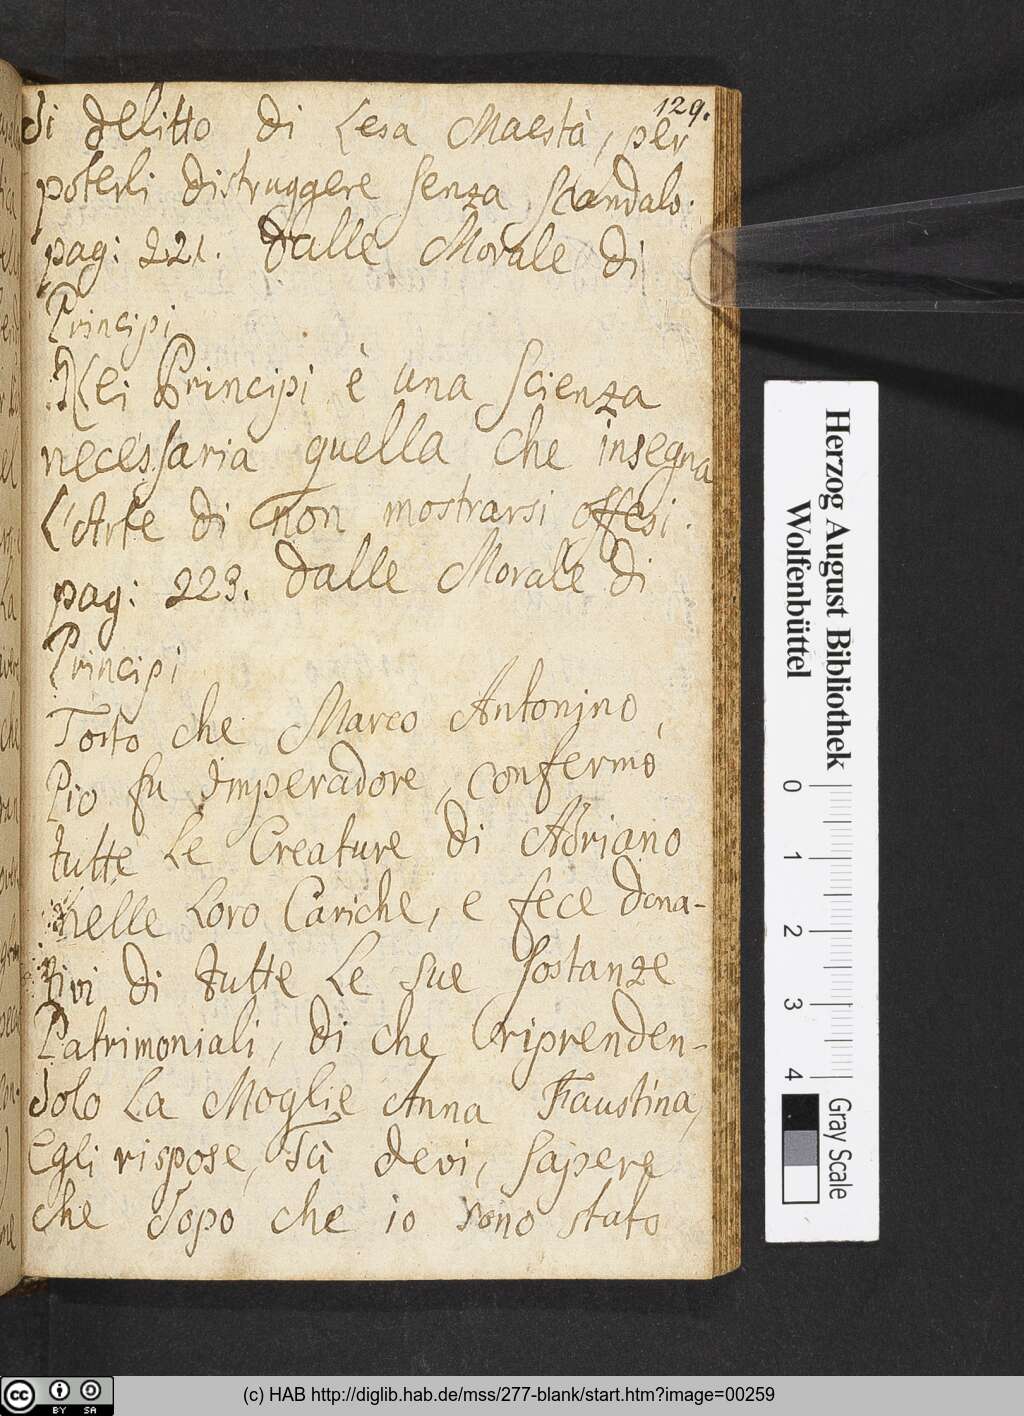 129.
di delitto di Lesa Maestà, per
poterli distruggere senza scandalo.
pag: 221. dalle Morale di
Principi
Nei Principi è una scienza
necessaria quella che insegna
L'Arte di non mostrarsi offesi.
pag: 223. dalle Morale di
Principi
Tosto che Marco Antonino,
Pio fu Imperadore, confermò
tutte Le Creature di Adriano
nelle Loro Cariche, e fece dona-
tivi di tutte Le sue sostanze
Patrimoniali, di che riprenden-
dolo La Moglie Anna Faustina,
Egli rispose, Tù devi, sapere
che dopo che io sono stato
Herzog August Bibliothek
Wolfenbüttel
0 1 2 3 4
Gray Scale
cc BY SA
(c) HAB http://diglib.hab.de/mss/277-blank/start.htm?image=00259